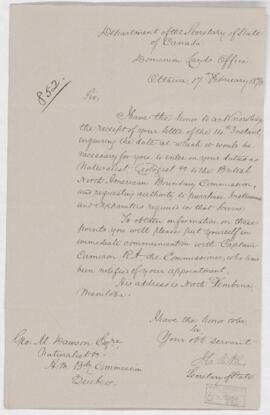 Department of the Secretary of State
of Canada
Dominion Lands Office
Ottawa 17 February 187
852.
Sir,
I have the honor to acknowledge
the receipt of your letter of the 14th Instant
enquiring the date at which it would be
necessary for you to enter in your duties as
Naturalist & Geologist to the British
North American Boundary Commission,
and requesting authority to purchase Instruments
and Apparatus required in that Service.
To obtain information on these
points you will please put yourself in
immediate communication with Captain
Cameron R.A. the Commissioner, who has
been notified of your appointment.
His address is North Pembina,
Manitoba.
I have the honor to be
Sir
Your obt servant
Secretary of State
Geo. M. Dawson Esqre
Naturalist &c
H.M. Bdy Commission
Quebec